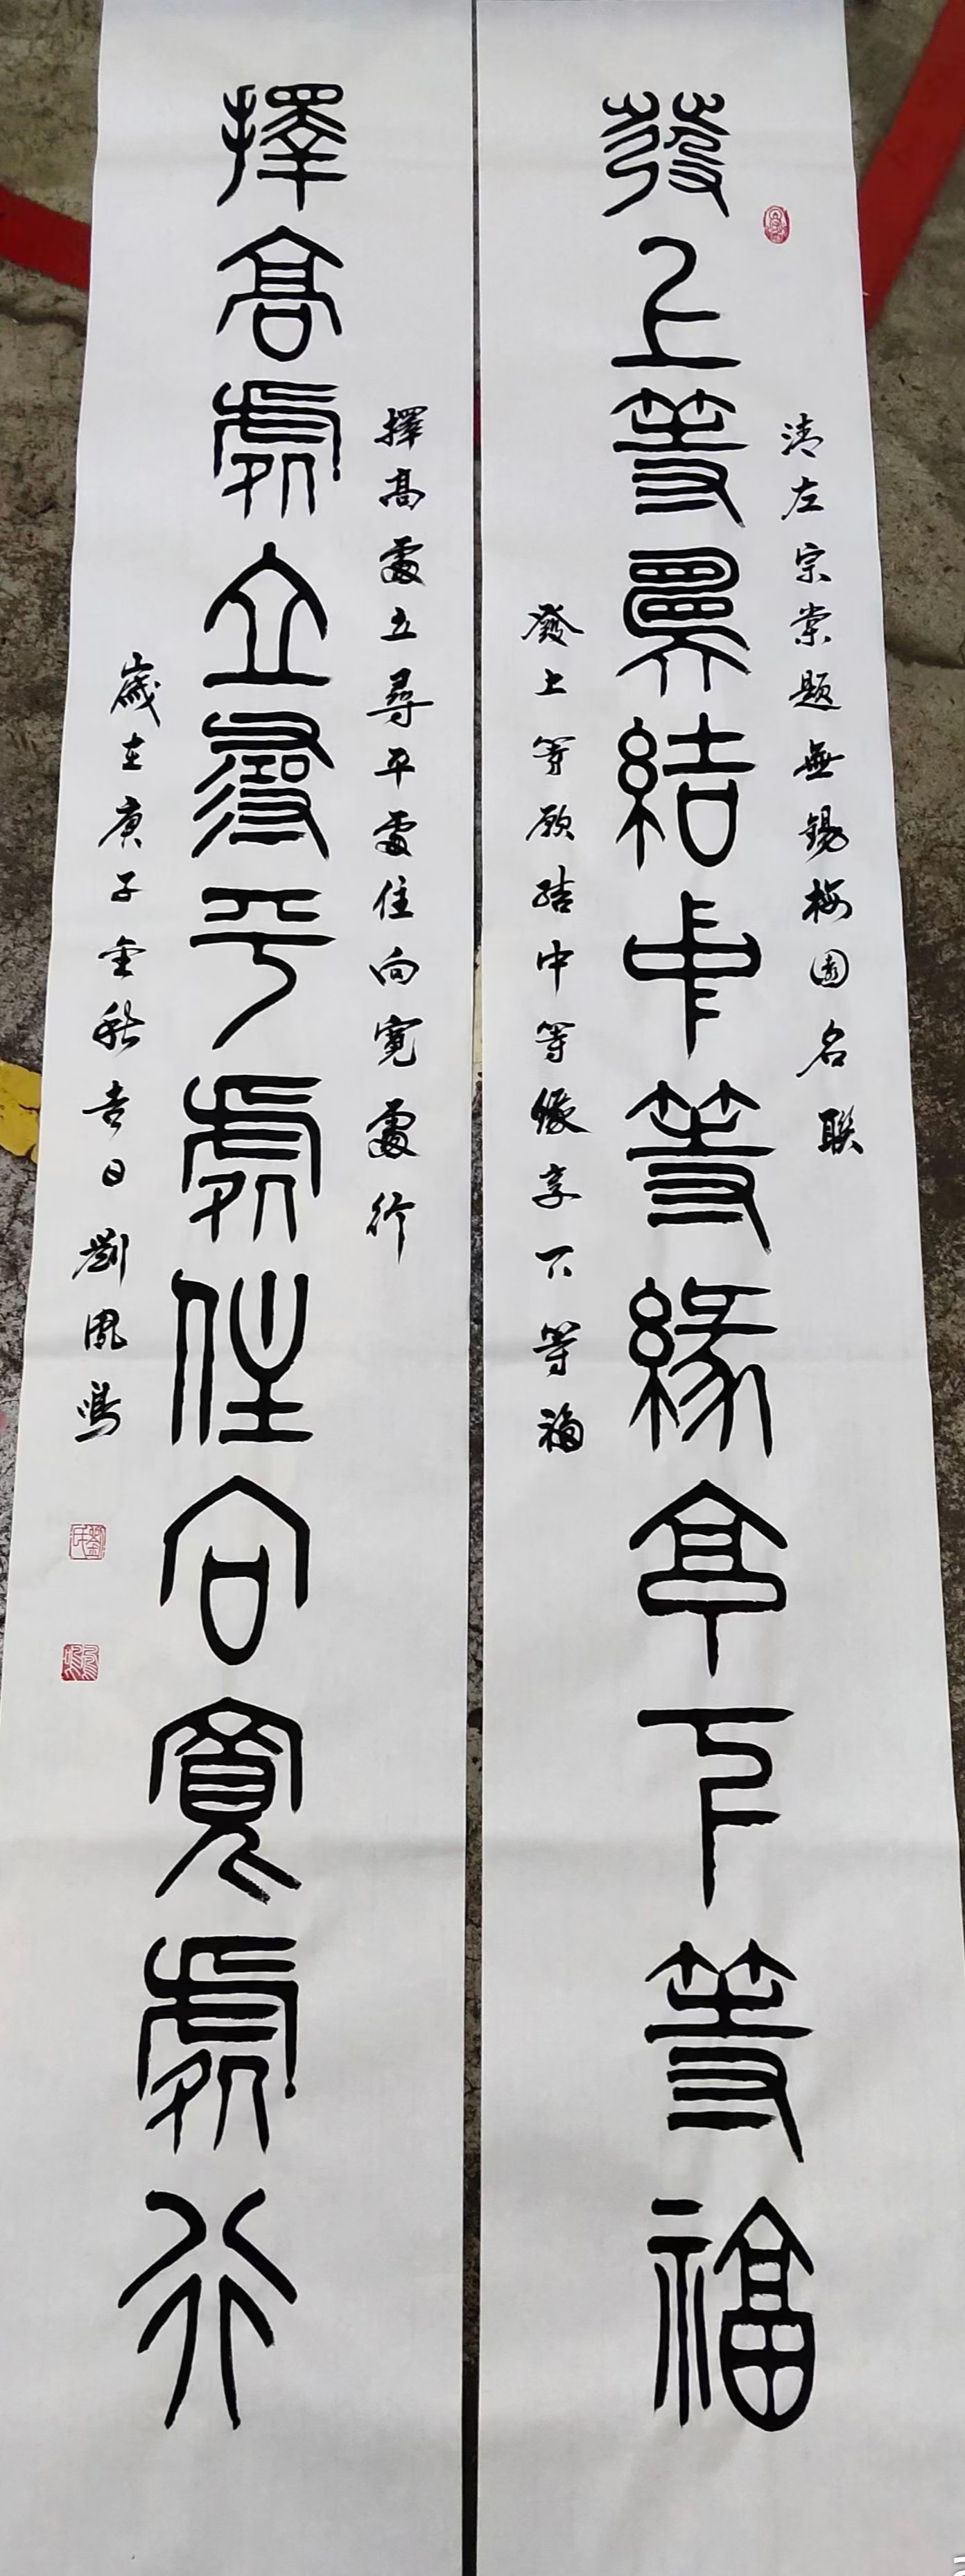 清左宗棠题無錫梅園名联
發上等願結中等緣享下等福
發上等願結中等緣享下等福
擇高處立尋平處住向寬處行
擇高處立尋平處住向寬處行
歲在庚子金秋吉日劉鳳鳴
劉氏